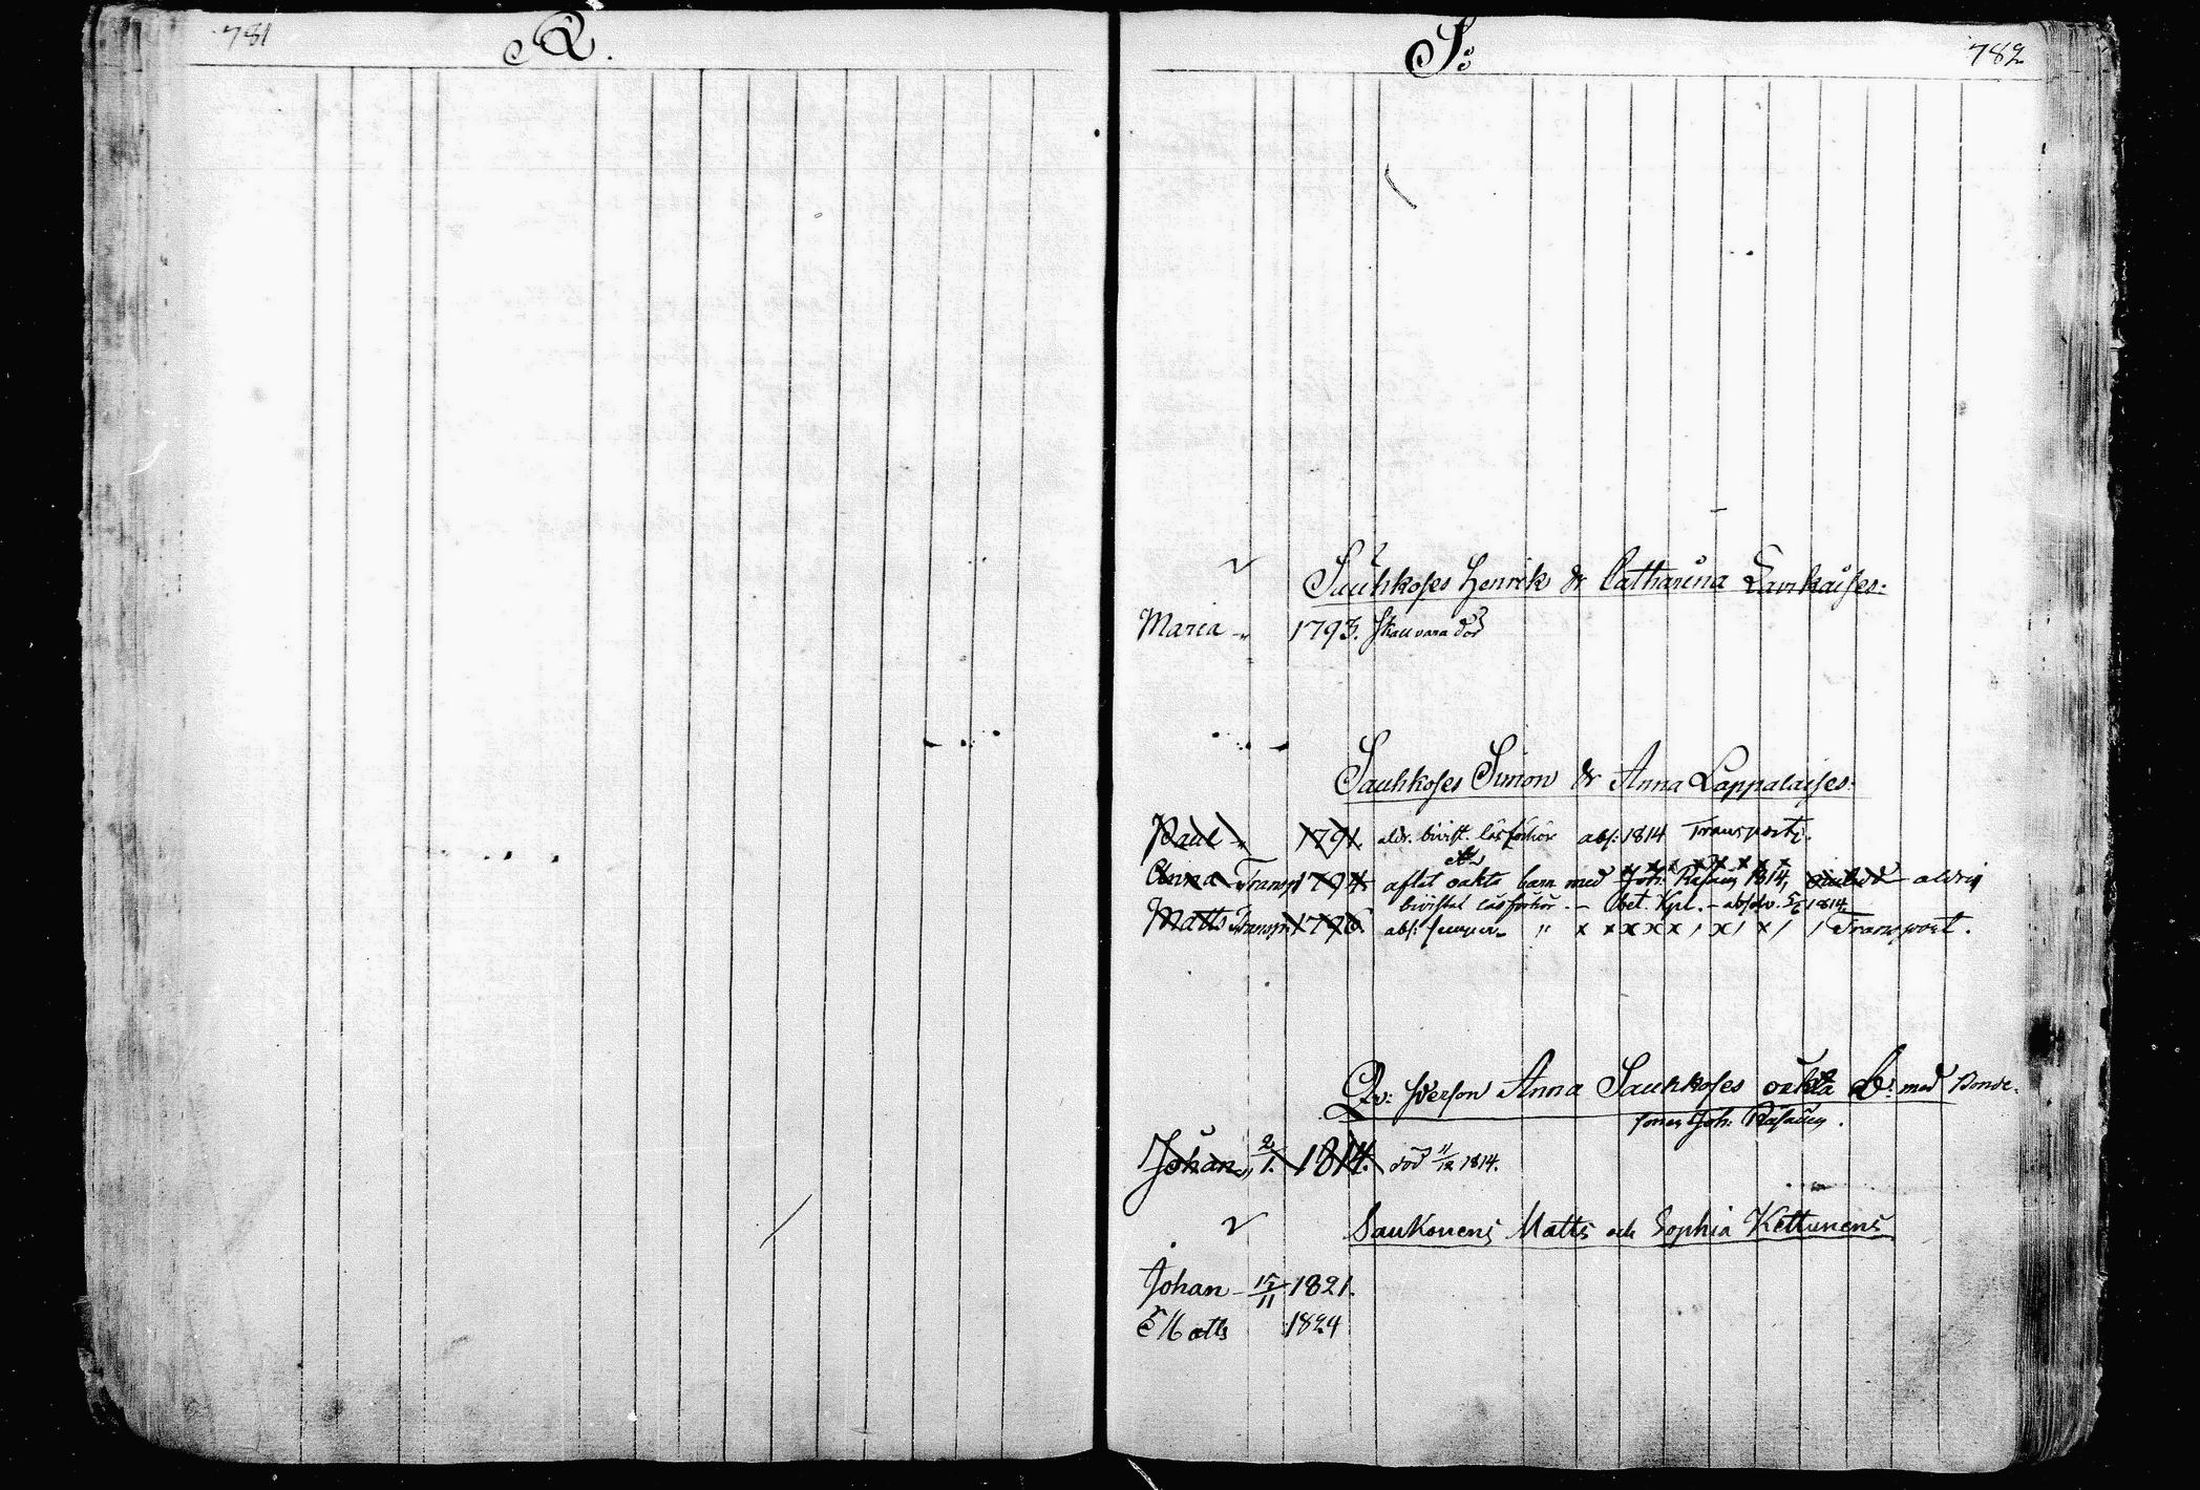 781
R.
S:
782
Sauhkoses Henrik & Catharina Laukaises:
Maria 1793. Skall vara död
Sauhkoses Simon & Anna Lappalaises:
Paul 1791. aldr. bivist. läsförhör abs: 1814 Transport.
Anna Transp 1794 aflat oäkta barn med Joh: Räsäin 1814, aldrig
bivistat läsförhör. - bet. Kpl. - absolv. 1814.
Matts Transp. 1796. abs: semper " x x x x x / x / x / / Transport.
Qv: Person Anna Sauhkoses oäkta b: med Bonde-
sonen Joh: Räsäin.
Johan 2/1. 1814. död 11/12 1814.
Saukonens Matts och Sophia Kettunens
Johan - 15/11 1821.
Matts 1824